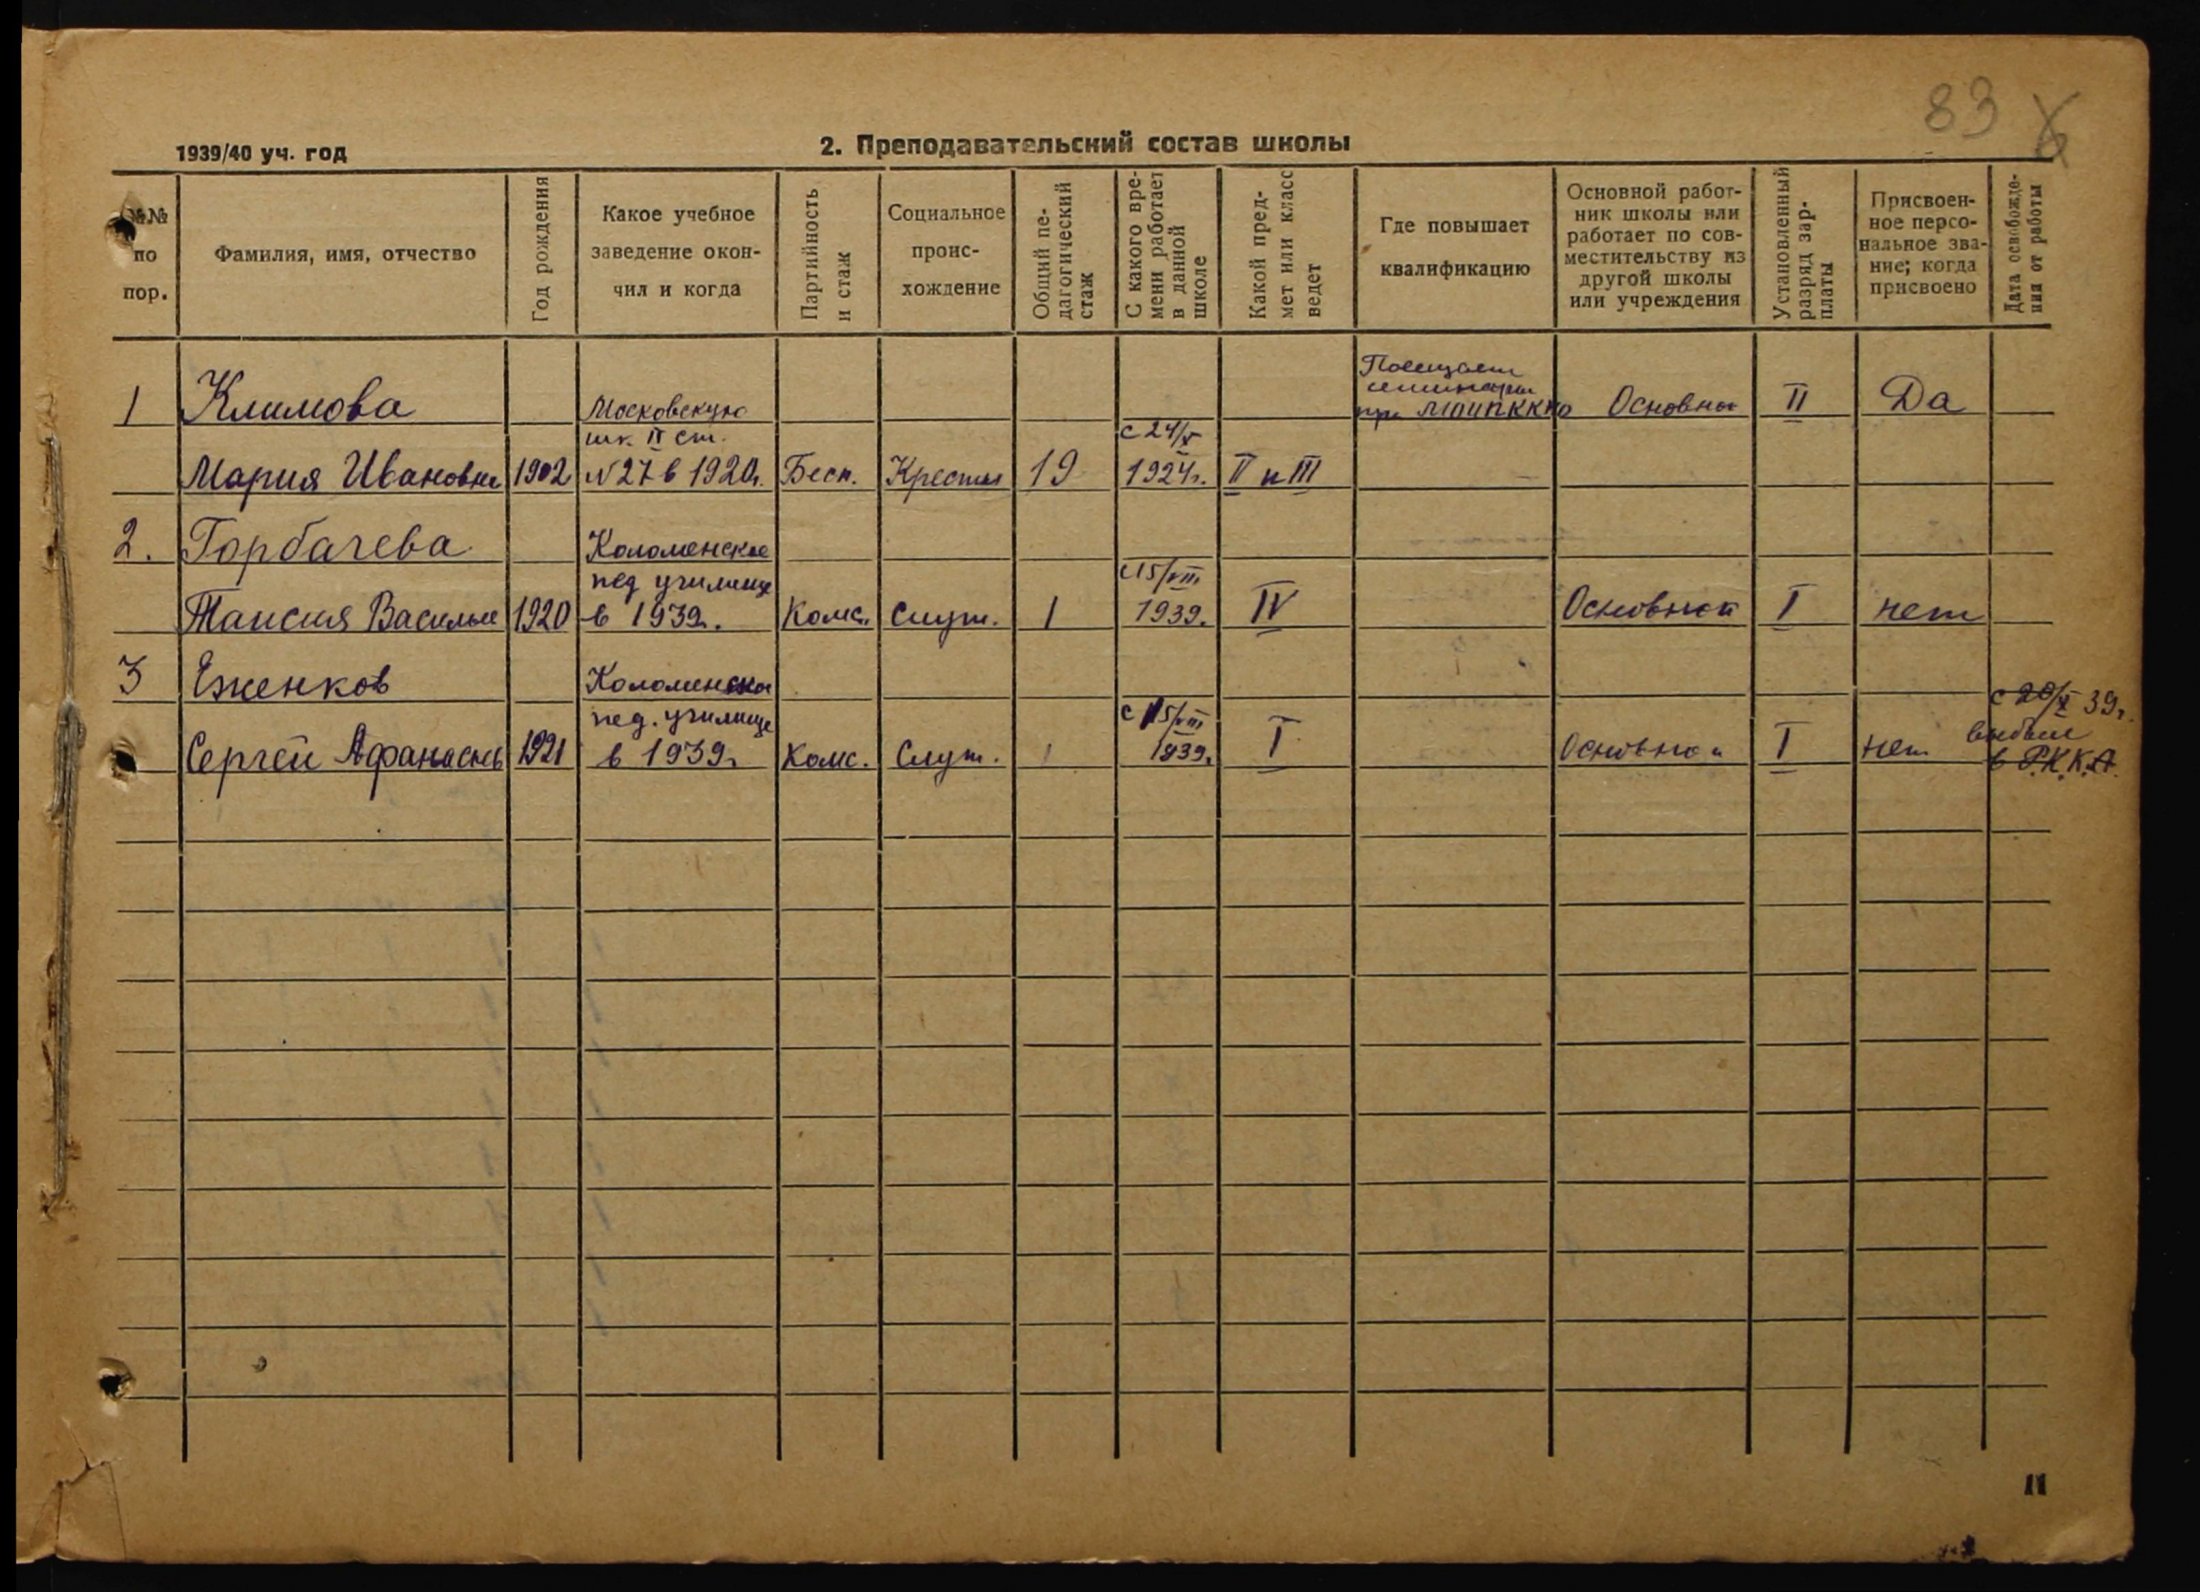 83
1939/40 уч. год
2. Преподавательский состав школы
№№ по пор.
Фамилия, имя, отчество
Год рождения
Какое учебное заведение окон-
чил и когда
Партийность и стаж
Социальное проис-
хождение
Общий пе-
дагогический стаж
С какого вре-
мени работает в данной школе
Какой пред-
мет или класс ведет
Где повышает квалификацию
Основной работ-
ник школы или работает по сов-
местительству из другой школы или учреждения
Установленный разряд зар-
платы
Присвоен-
ное персо-
нальное зва-
ние; когда присвоено
Дата освобожде-
ния от работы
1 Климова
Мария Ивановна
1902
Московскую
шк. II ст.
N 27 в 1920г.
Бесп.
19
с 24/X
1924г.
II и III
Посещает
семинарии
при
Основной
II
Да
2. Горбачева
Таисия Василье
1920
Коломенское
пед училище
в 1939г.
Комс.
Служ.
1
с 15/VIII
1939.
IV
Основной
I
нет
3 Еженков
Сергей Афанасьев
1921
Коломенское
пед. училище
в 1939г
Комс.
Служ.
1
с 15/VIII
1939.
I
Основной
I
нет
с 20/X 39г.
выбыл
в Р.К.К.А.
11